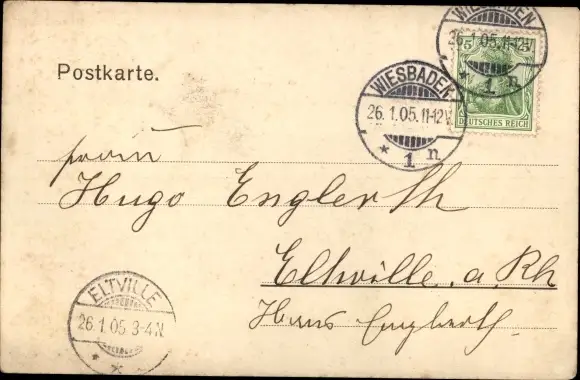 WIESBADEN
26.1.05.11-12V.
1n
5
5
DEUTSCHES REICH
Postkarte.
WIESBADEN
26.1.05.11-12V.
* 1 n
Hugo Englerth
Eltville a. Rh
Haus Englerth.
ELTVILLE
26.1.05.3-4N
* *